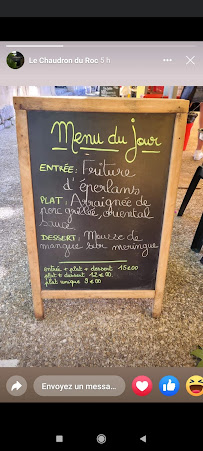 Le Chaudron du Roc 5 h
Menu du jour
ENTRÉE: Friture
d'éperlans
PLAT: Arraignée de
porc grillée, oriental
sauce
DESSERT: Mousse de
mangue sur meringue
entrée + plat + dessert 15€00
plat + dessert 12€00
plat unique 9€00
Envoyez un messa...